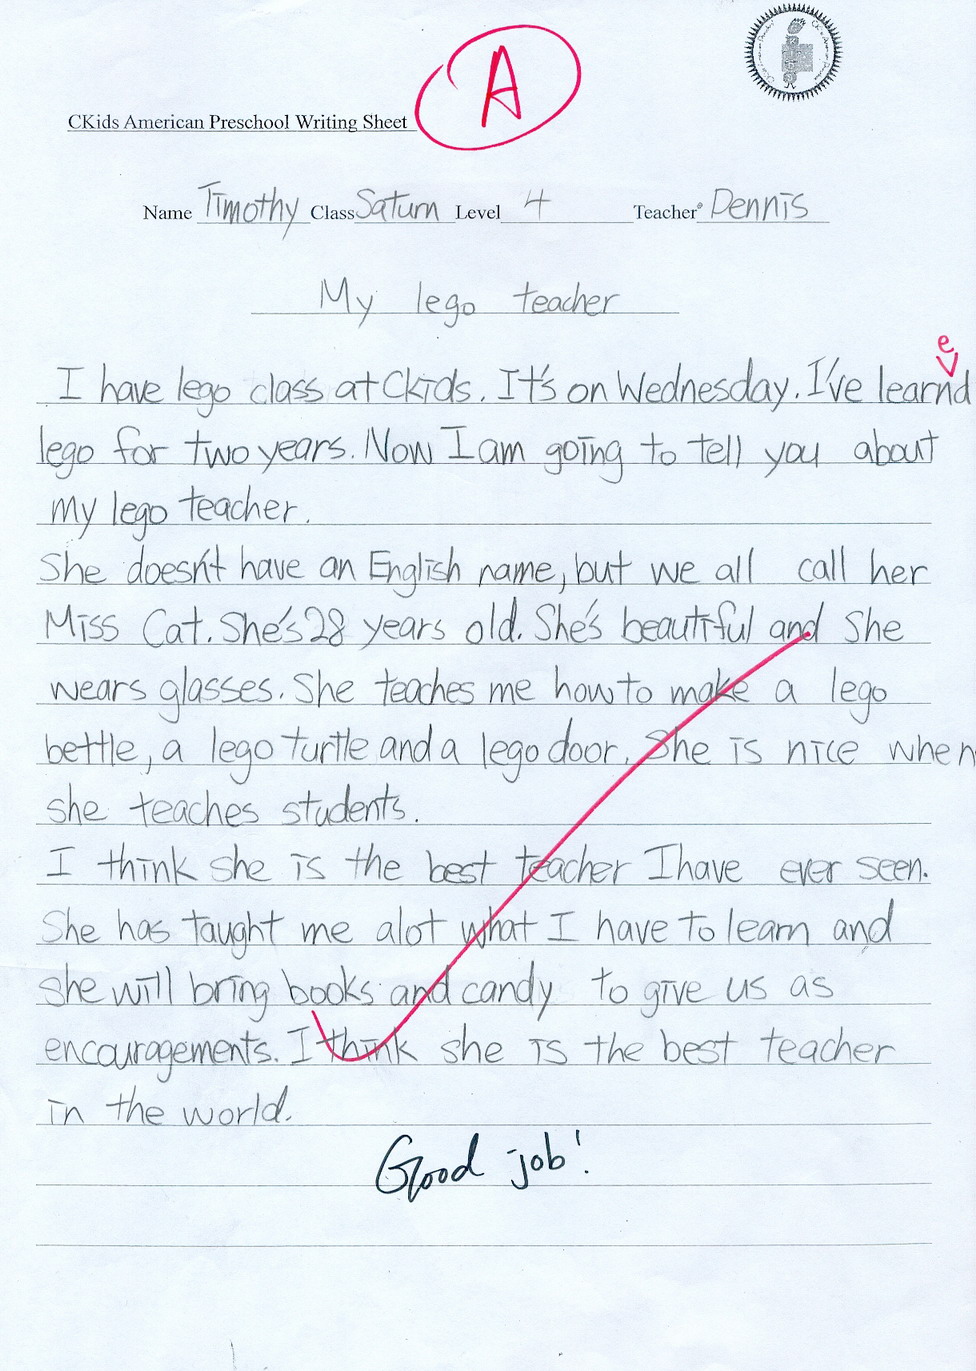 A
CKids American Preschool Writing Sheet
Name Timothy Class Saturn Level 4 Teacher: Dennis
My lego teacher
e
I have lego class at Ckids. It's on Wednesday. I've learnd
lego for two years. Now I am going to tell you about
my lego teacher.
She doesn't have an English name, but we all call her
Miss Cat. She's 28 years old. She's beautiful and she
wears glasses. She teaches me how to make a lego
bettle, a lego turtle and a lego door. She is nice when
she teaches students.
I think she is the best teacher I have ever seen.
She has taught me alot what I have to learn and
she will bring books and candy to give us as
encouragements. I think she is the best teacher
in the world.
Good job!